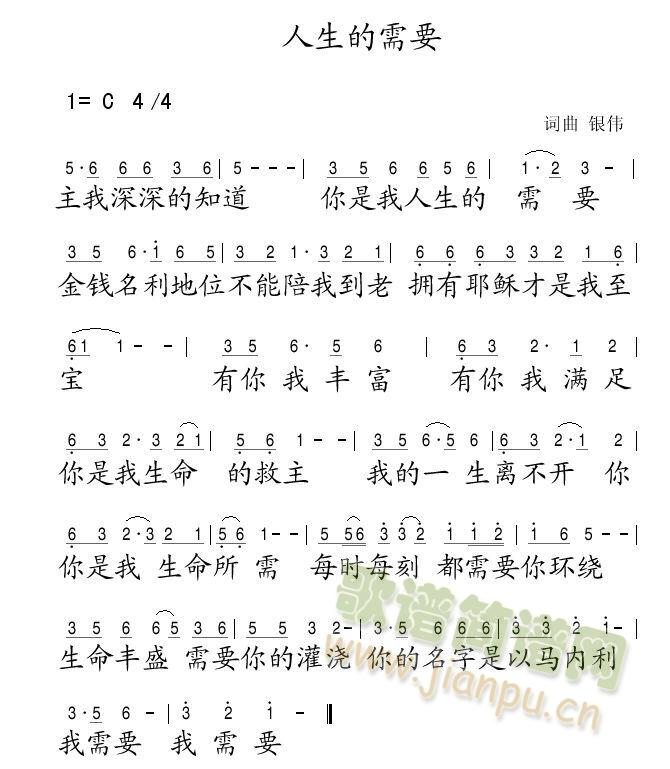 人生的需要
1= C 4/4
词曲 银伟
5·6 6 6 3 6 | 5 - - - | 3 5 6 6 5 6 | 1·2 3 - |
主我深深的知道 你是我人生的 需 要
3 5 6·1 6 5 | 3 2 1·3 2 1 | 6 6 6 3 3 2 1 6 |
金钱名利地位不能陪我到老 拥有耶稣才是我至
61 1 - - | 3 5 6· 5 6 | 6 3 2· 1 2 |
宝 有你 我 丰 富 有你 我 满 足
6 3 2·3 21 | 5·6 1 - - | 3 5 6·5 6 | 6 3 2·1 2 |
你是我生命 的救主 我的一 生离不开 你
6 3 2·3 2 | 5·6 1 - - | 5 56 3·32 | 1 1 1 2 3 | 1 6 5 - - |
你是我 生命所 需 每时每刻 都需要你环绕
3 5 6 65 6 | 3·5 5 3 2 - | 3·5 6 6 6 | 3 3 2 1 - |
生命丰盛 需要你的灌浇 你的名字是以马内利
3·5 6 - | 3 2 1 - ‖
我需要 我 需 要
歌谱简谱网
www.jianpu.cn